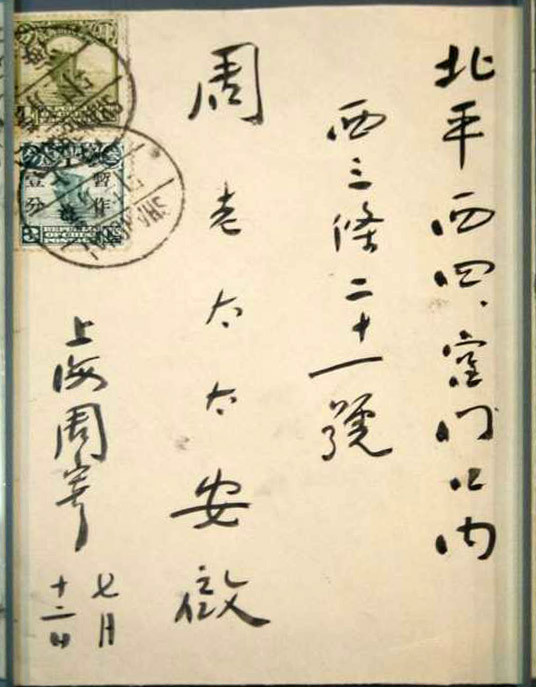 北平西四、宮门口内
西三條二十一號
周老太太安啟
上海周寄
七月
十二日
暫作
壹分
SHANGHAI